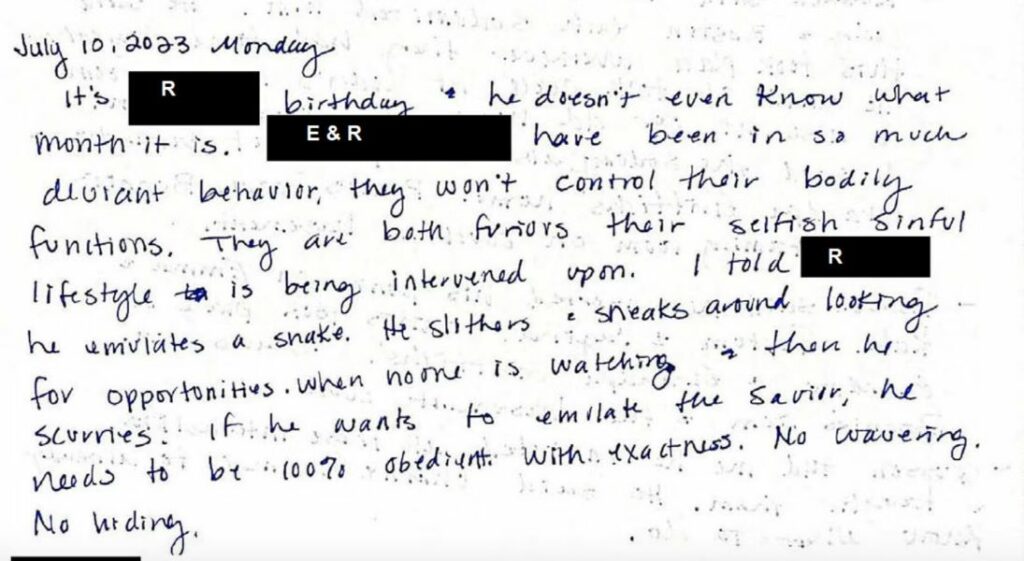 July 10, 2023 Monday
It's R birthday & he doesn't even know what
month it is. E & R have been in so much
deviant behavior, they won't control their bodily
functions. They are both furiors their selfish sinful
lifestyle is being intervened upon. I told R
he emulates a snake. He slithers & sneaks around looking
for opportunities. When no one is watching & then he
scurries. If he wants to emulate the Savior, he
needs to be 100% obedient with exactness. No wavering.
No hiding.